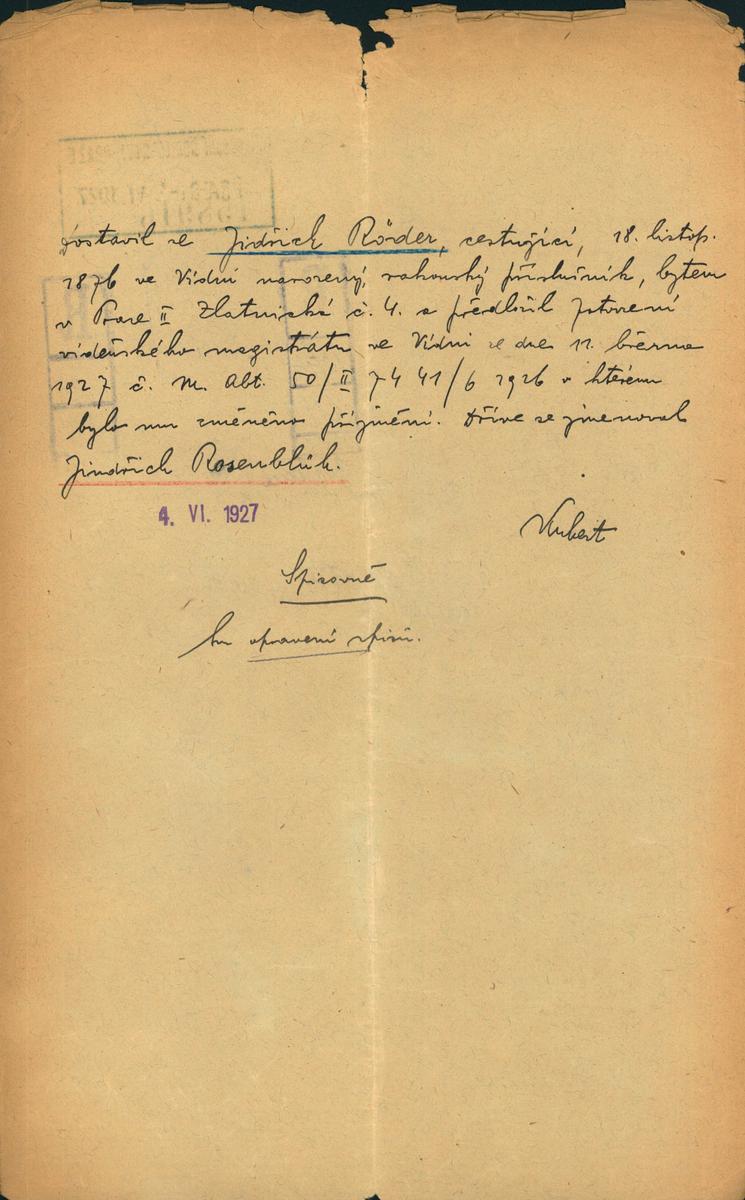 Dostavil se Jidřich Röder, cestující, 18. listop.
1876 ve Vídni narozený, rakouský příslušník, bytem
v Praze II Zlatnická č. 4. a předložil
vídeňského magistrátu ve Vídni ze dne 11. března
1927 č. M. Abt. 50/II 7441/6 1926 v kterém
bylo mu změněno příjmění. Dříve se jmenoval
Jindřich Rosenblüh.
4. VI. 1927
Spisovně
ku opravení spisů.